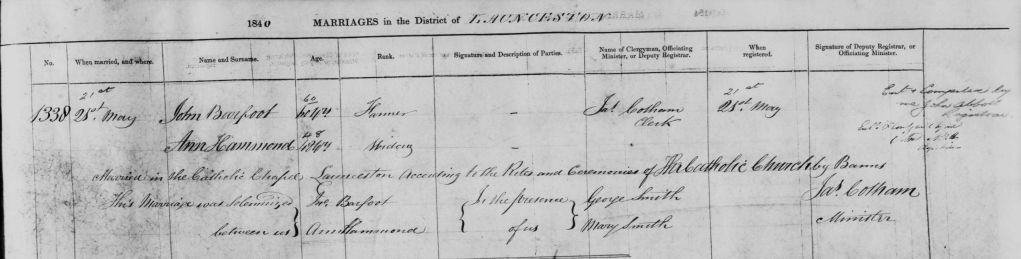 1840 MARRIAGES in the District of LAUNCESTON
No. When married, and where. Name and Surname. Age. Rank. Signature and Description of Parties. Name of Clergyman, Officiating Minister, or Deputy Registrar. When registered. Signature of Deputy Registrar, or Officiating Minister.
21st 60 21st
1338 28st May John Barfoot Farmer Jas. Cotham 28st May
Clerk
48
Ann Hammond Widow
Married in the Catholic Chapel Launceston According to the Rites and Ceremonies of The Catholic Church by Banns
This Marriage was solemnized between us } Jno. Barfoot { In the presence of us } George Smith Jas. Cotham
Ann Hammond Mary Smith Minister